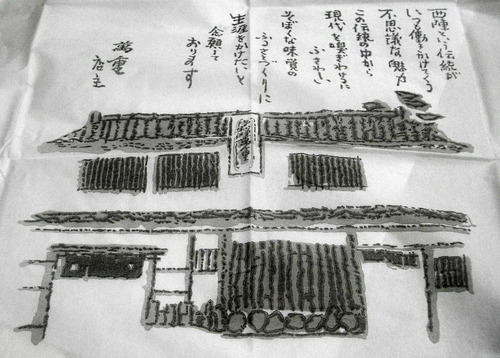 西陣という伝統が
いつも働きかけてくる
不思議な魅力
この伝統の中から
現代を嗅ぎわけるに
ふさわしい
そぼくな味覚の
ふるさとづくりに
生涯をかけたいと
念願して
おります
店主